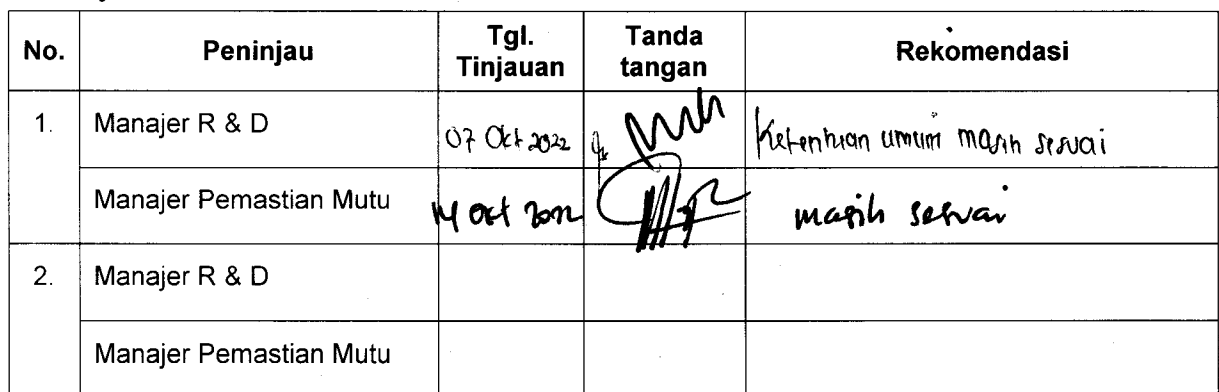 No. Peninjau Tgl. Tinjauan Tanda tangan Rekomendasi
1. Manajer R & D 07 Okt 2022 Ketentuan umum masih sesuai
Manajer Pemastian Mutu 14 Okt 2022 masih sesuai
2. Manajer R & D
Manajer Pemastian Mutu